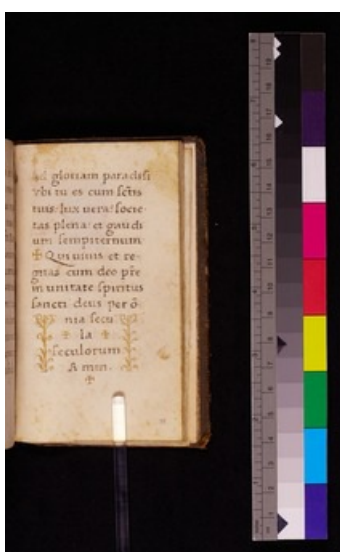 ad gloriam paradisi
vbi tu es cum sc̄tis
tuis lux vera: socie-
tas plena: et gaudi
um sempiternum
✠ Qui uiuis et re-
gnas cum deo p̄re
in unitate spiritus
sancti deus per ō-
nia secu
✠ la ✠
seculorum
Amin.
✠